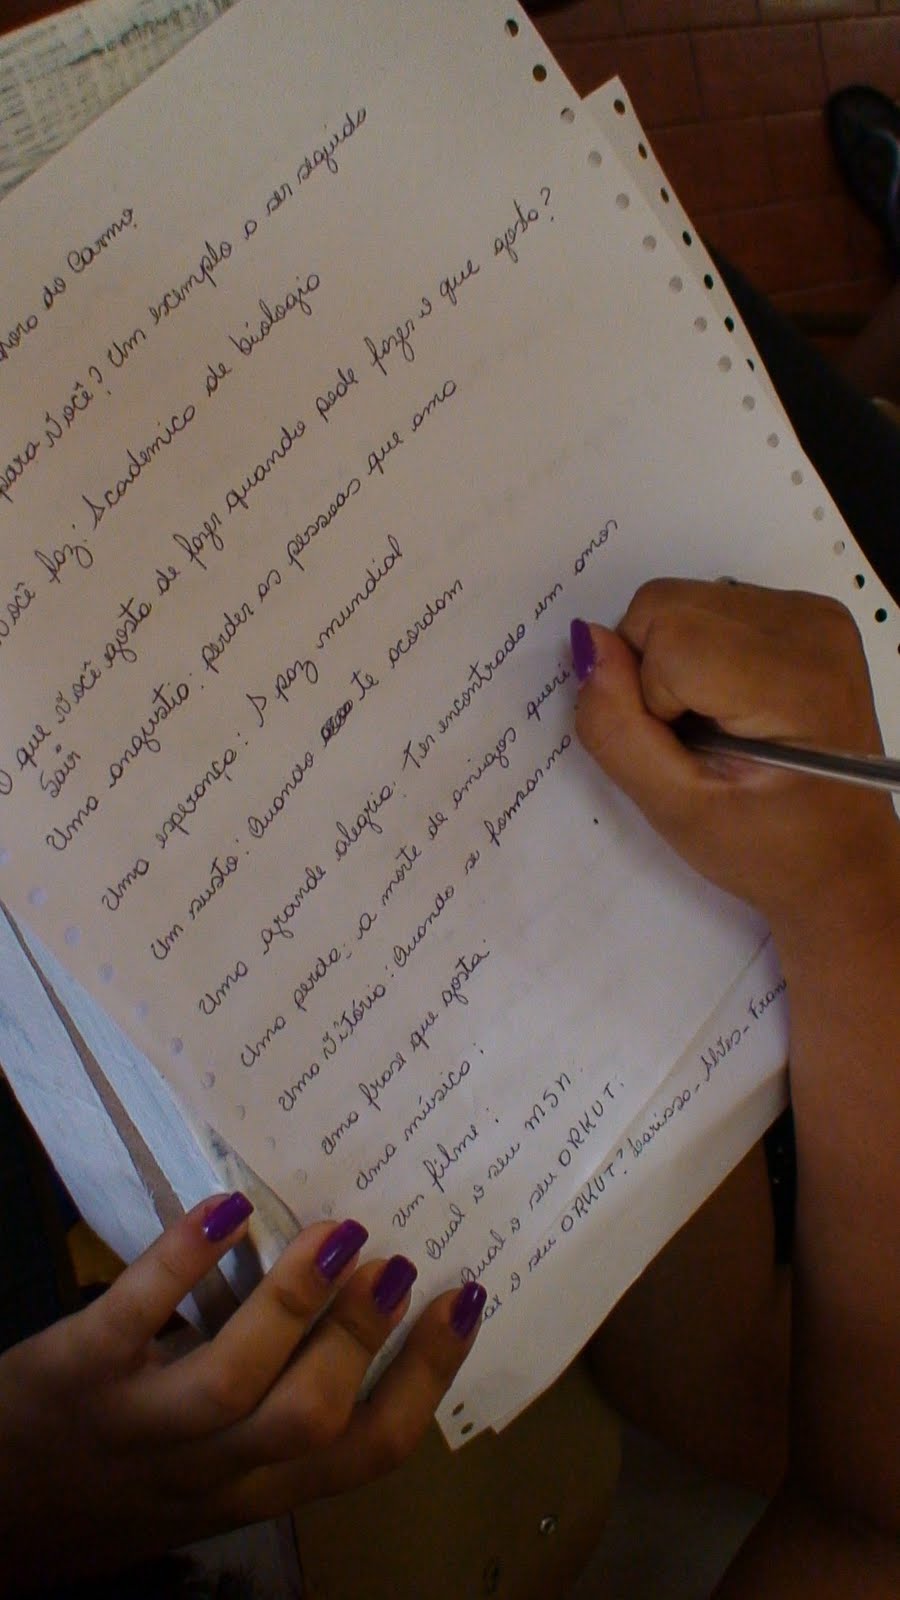 do Carmo
para você? Um exemplo a ser seguido
você faz: Academico de biologia
O que você gosta de fazer quando pode fazer o que gosta?
Sair
Uma angustia: perder as pessoas que amo
Uma esperança: A paz mundial
Um susto: Quando te acordam
Uma grande alegria: Ter encontrado um amor
Uma perda: a morte de amigos queri
Uma vitória: Quando se formar no
Uma frase que gosta:
Uma música:
Um filme:
Qual o seu MSN:
Qual o seu ORKUT:
o seu ORKUT? Larissa_Alves_Fran